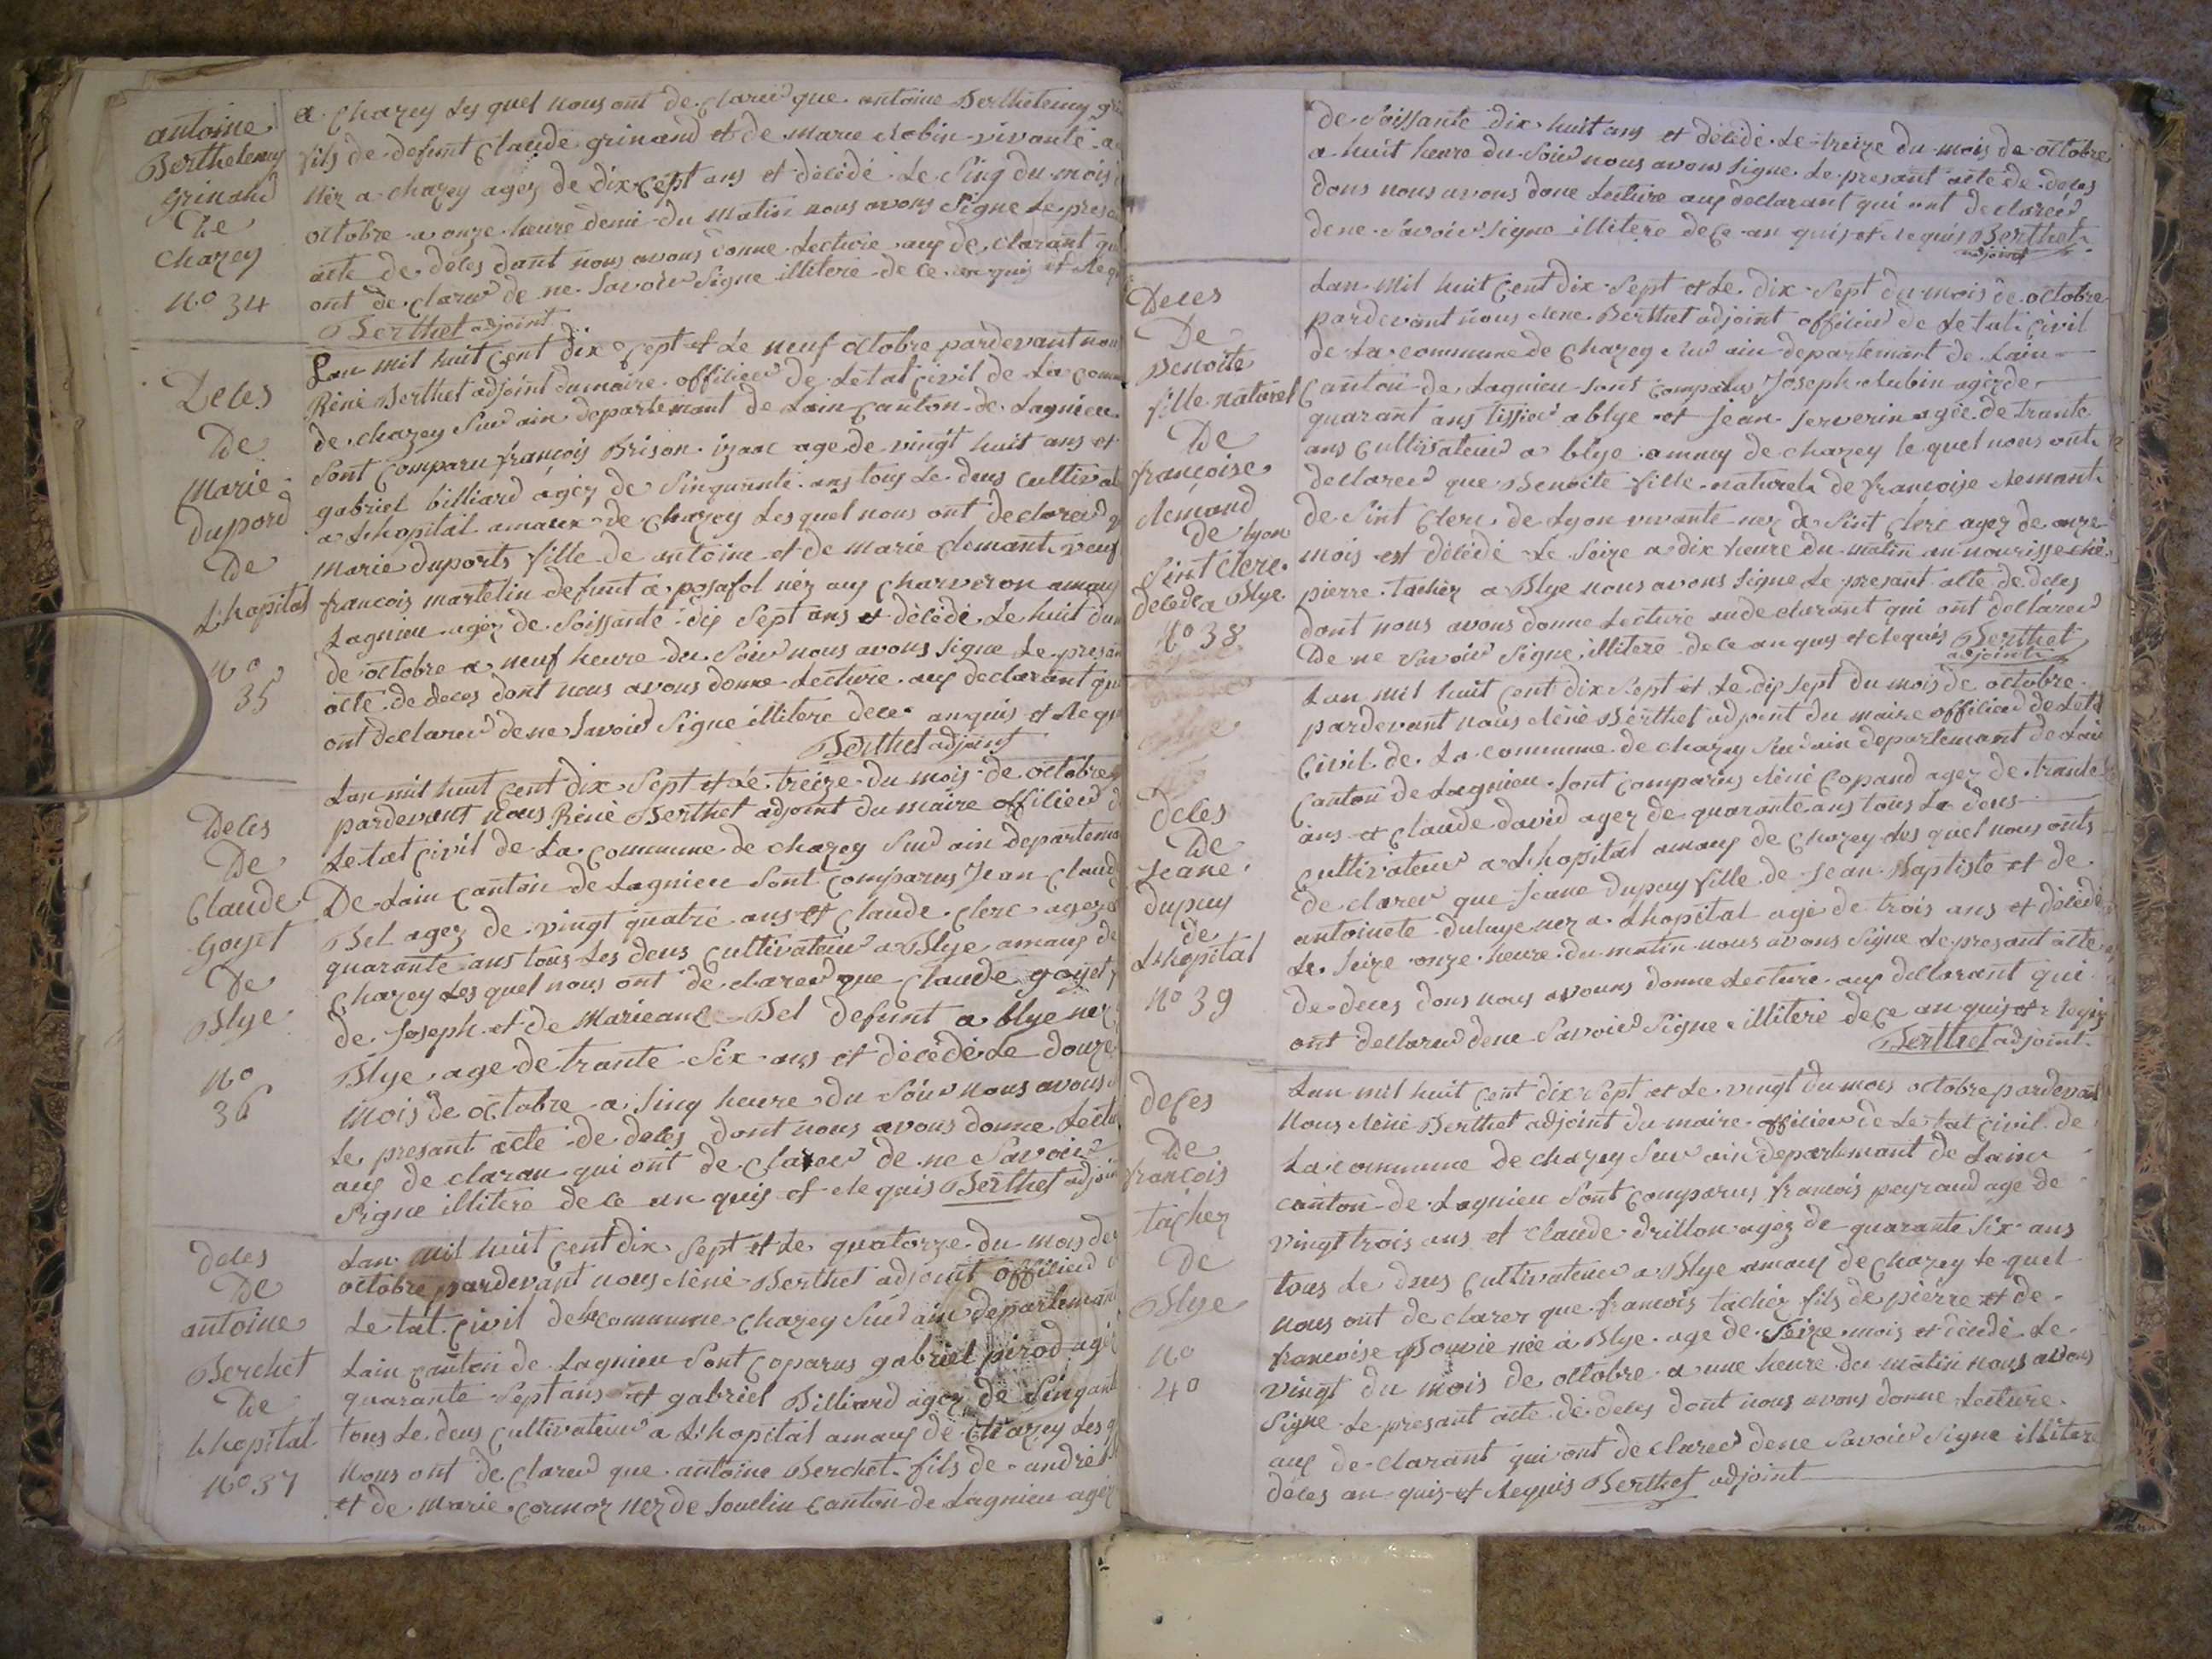 antoine
Berthelemy
grinand
De
Chazey
No 34
a Chazey Les quel nous ont de clareé que antoine Berthelemy
fils de defunt Claude grinand et de marie Robin vivante
Nez a chazey agez de dix cept ans et dèlèdé Le Sinq du mois
octobre a onze heure demi du matin nous avons Signe Le
acte de deles dont nous avons donne Lecture aux de clarant
ont de clareé de ne Savoir Signe illitere de ce
Berthet adjoint
Deles
De
Marie
dupord
De
Lhopital
No
35
Lan mil huit Cent dix Sept et Le neuf octobre pardevant
Réné Berthet adjoint dumaire offilier de Letat civil de La
de chazey Sur ain departemant de Lain Canton de Lagnieu
Sont Comparu françois Brison izaac age de vingt huit ans et
gabriel billiard agéz de Sinquante ans tous Le deus
a Lhopital amaux de Chazey Les quel nous ont declareé
marie duports fille de antoine et de marie clemant
francois martelin defunt a posafol nez aux Charveron amaux
Lagnieu agez de Soissante dix Sept ans et dèlédé Le huit
de octobre a neuf heure du Soir nous avons Signe Le
acte de deces dont nous avons donne Lecture aux declarant
ont declareé de ne Savoir Signe illitere dece anquis et
Berthet adjoint
Deles
De
Claude
Goyet
De
Blye
No
36
Lan mil huit Cent dix Sept et Le treize du mois de octobre
pardevant Nous Réné Berthet adjoint du maire offilier
Letat Civil de La Commune de chazey Sur ain
De Lain Canton de Lagnieu Sont Comparus Jean
Bel agez de vingt quatre ans et Claude Clerc agez
quarante ans tous Les deus Cultivateur a Blye amaux de
Chazey Les quel nous ont de clareé que Claude goyet
de Joseph et de Marieane Bel defunt a blye nez
Blye age de trante Six ans et décédé Le douze
Mois de octobre a Sinq heure du Soir nous avons
Le presant acte de deles dont nous avons donne
aux de claran qui ont de clareé de ne Savoir
Signe illitere de ce an quis et Requis Berthet
deles
De
antoine
Berchet
De
Lhopital
No 37
Lan Mil huit Cent dix Sept et Le quatorze du mois de
octobre pardevant nous Réné Berthet adjoint offilier
Letat Civil de La commune Chazey Sur ain departemant
Lain Canton de Lagnieu Sont Coparus gabriel pirod
quarante Sept ans et gabriel Billiard agez de
tous Le deus Cultivateur a Lhopital amaux de Chazey
Nous ont de clareé que antoine Berchet fils de andré
et de Marie Cormoz Nez de Souclin Canton de Lagnieu
de Soissante dix huit ans et dèlédé Le treize du mois de octobre
a huit heure du Soir nous avons Signe Le presant acte de deles
dons nous avons done Lecture aux declarant qui ont declareé
dene Savoir Signe illitere dece an quis et Requis Berthet
adjoint
Deles
De
Benoite
fille naturel
De
francoise
Remand
De Lyon
Sint Clerc
deledé a Blye
No 38
Lan Mil huit Cent dix Sept et Le dix Sept du mois de octobre
pardevant nous Réné Berthet adjoint offilier de Letat Civil
de La commune de Chazey Sur ain departemant de Lain
Canton de Lagnieu Sont Comparus Joseph Aubin agéz de
quarant ans tissier a blye et Jean Serverin agée de trante
ans Cultivateur a blye amaux de chazey le quel nous ont
declareé que Benoite fille naturel de francoise Remant
de Sint Clerc de Lyon vivante nez a Sint Clerc agez de onze
mois est dèlédé Le Seize a dix heure du matin an nourisse ché
pierre tachez a Blye nous avons Signe Le presant acte de deles
dont nous avons donne Lecture au declarant qui ont declareé
De ne Savoir Signe illitere dece an quis et Requis Berthet
adjoint
deles
De
Jeane
dupuy
de
Lhopital
No 39
Lan mil huit Cent dix Sept et Le dix Sept du mois de octobre
pardevant nous Réné Berthet adjoint du maire offilier de
Civil de La commune de chazey Sur ain departemant de Lain
Canton de Lagnieu Sont comparus Réné Copand agez de trante
ans et Claude david agez de quarante ans tous Le deus
Cultivateur a Lhopital amaux de Chazey Les quel nous ont
de clareé que Jeane dupuy fille de Jean Baptiste et de
antoinete nez a Lhopital agé de trois ans et dèlédé
Le Seize onze heure du matin nous avons Signe Le presant acte
de deces dons nous avons donne Lecture aux declarant qui
ont declareé dene Savoir Signe illitere dece an quis et
Berthet adjoint
deles
De
francois
tachez
De
Blye
No
40
Lan mil huit Cent dix Sept et Le vingt du mois octobre pardevant
Nous Réné Berthet adjoint du maire offilier de Letat Civil de
La commune de chazey Sur ain departemant de Lain
Canton de Lagnieu Sont Comparus francois peyraud age de
vingt trois ans et Claude drillon agéz de quarante Six ans
tous Le deus Cultivateur a Blye amaux de Chazey Le quel
nous ont de clarer que francois tachez fils de pierre et de
francoise Bouvie née a Blye age de Seize mois et dèlédé Le
vingt du mois de octobre a une heure du matin nous avons
Signe Le presant acte de deles dont nous avons donne Lecture
aux de clarant qui ont declareé dene Savoir Signe illitere
deces an quis et Requis Berthet adjoint